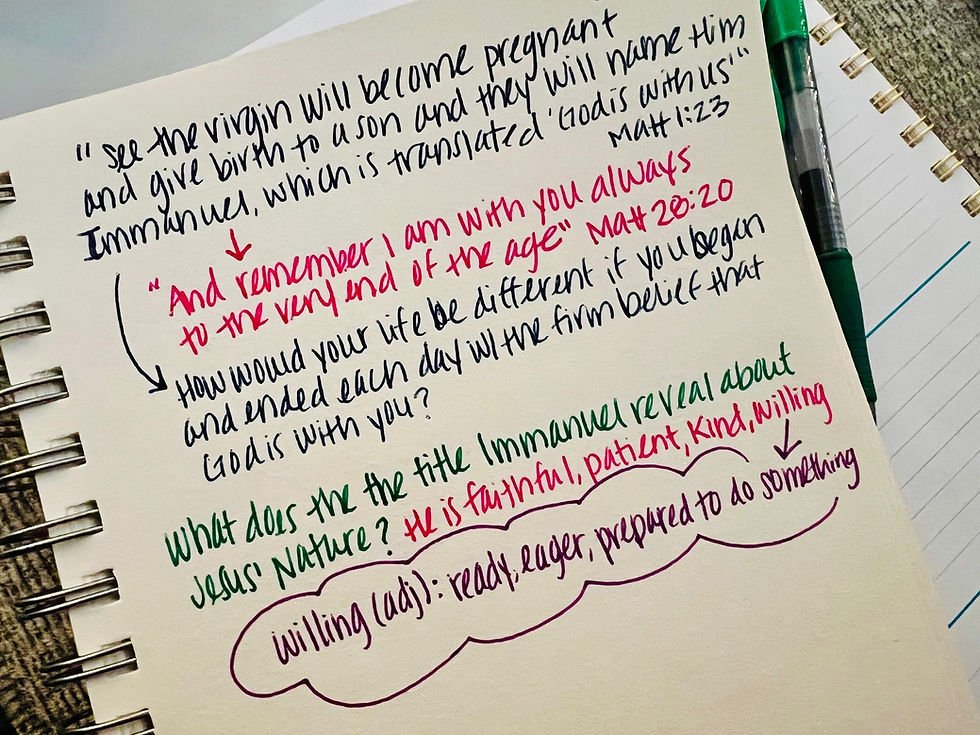 "See the virgin will become pregnant
and give birth to a son and they will name Him
Immanuel, which is translated 'God is with us'"
Matt 1:23
"And remember I am with you always
to the very end of the age" Matt 28:20
How would your life be different if you began
and ended each day w/ the firm belief that
God is with you?
What does the the title Immanuel reveal about
Jesus' Nature? He is faithful, patient, kind, willing
willing (adj): ready, eager, prepared to do something